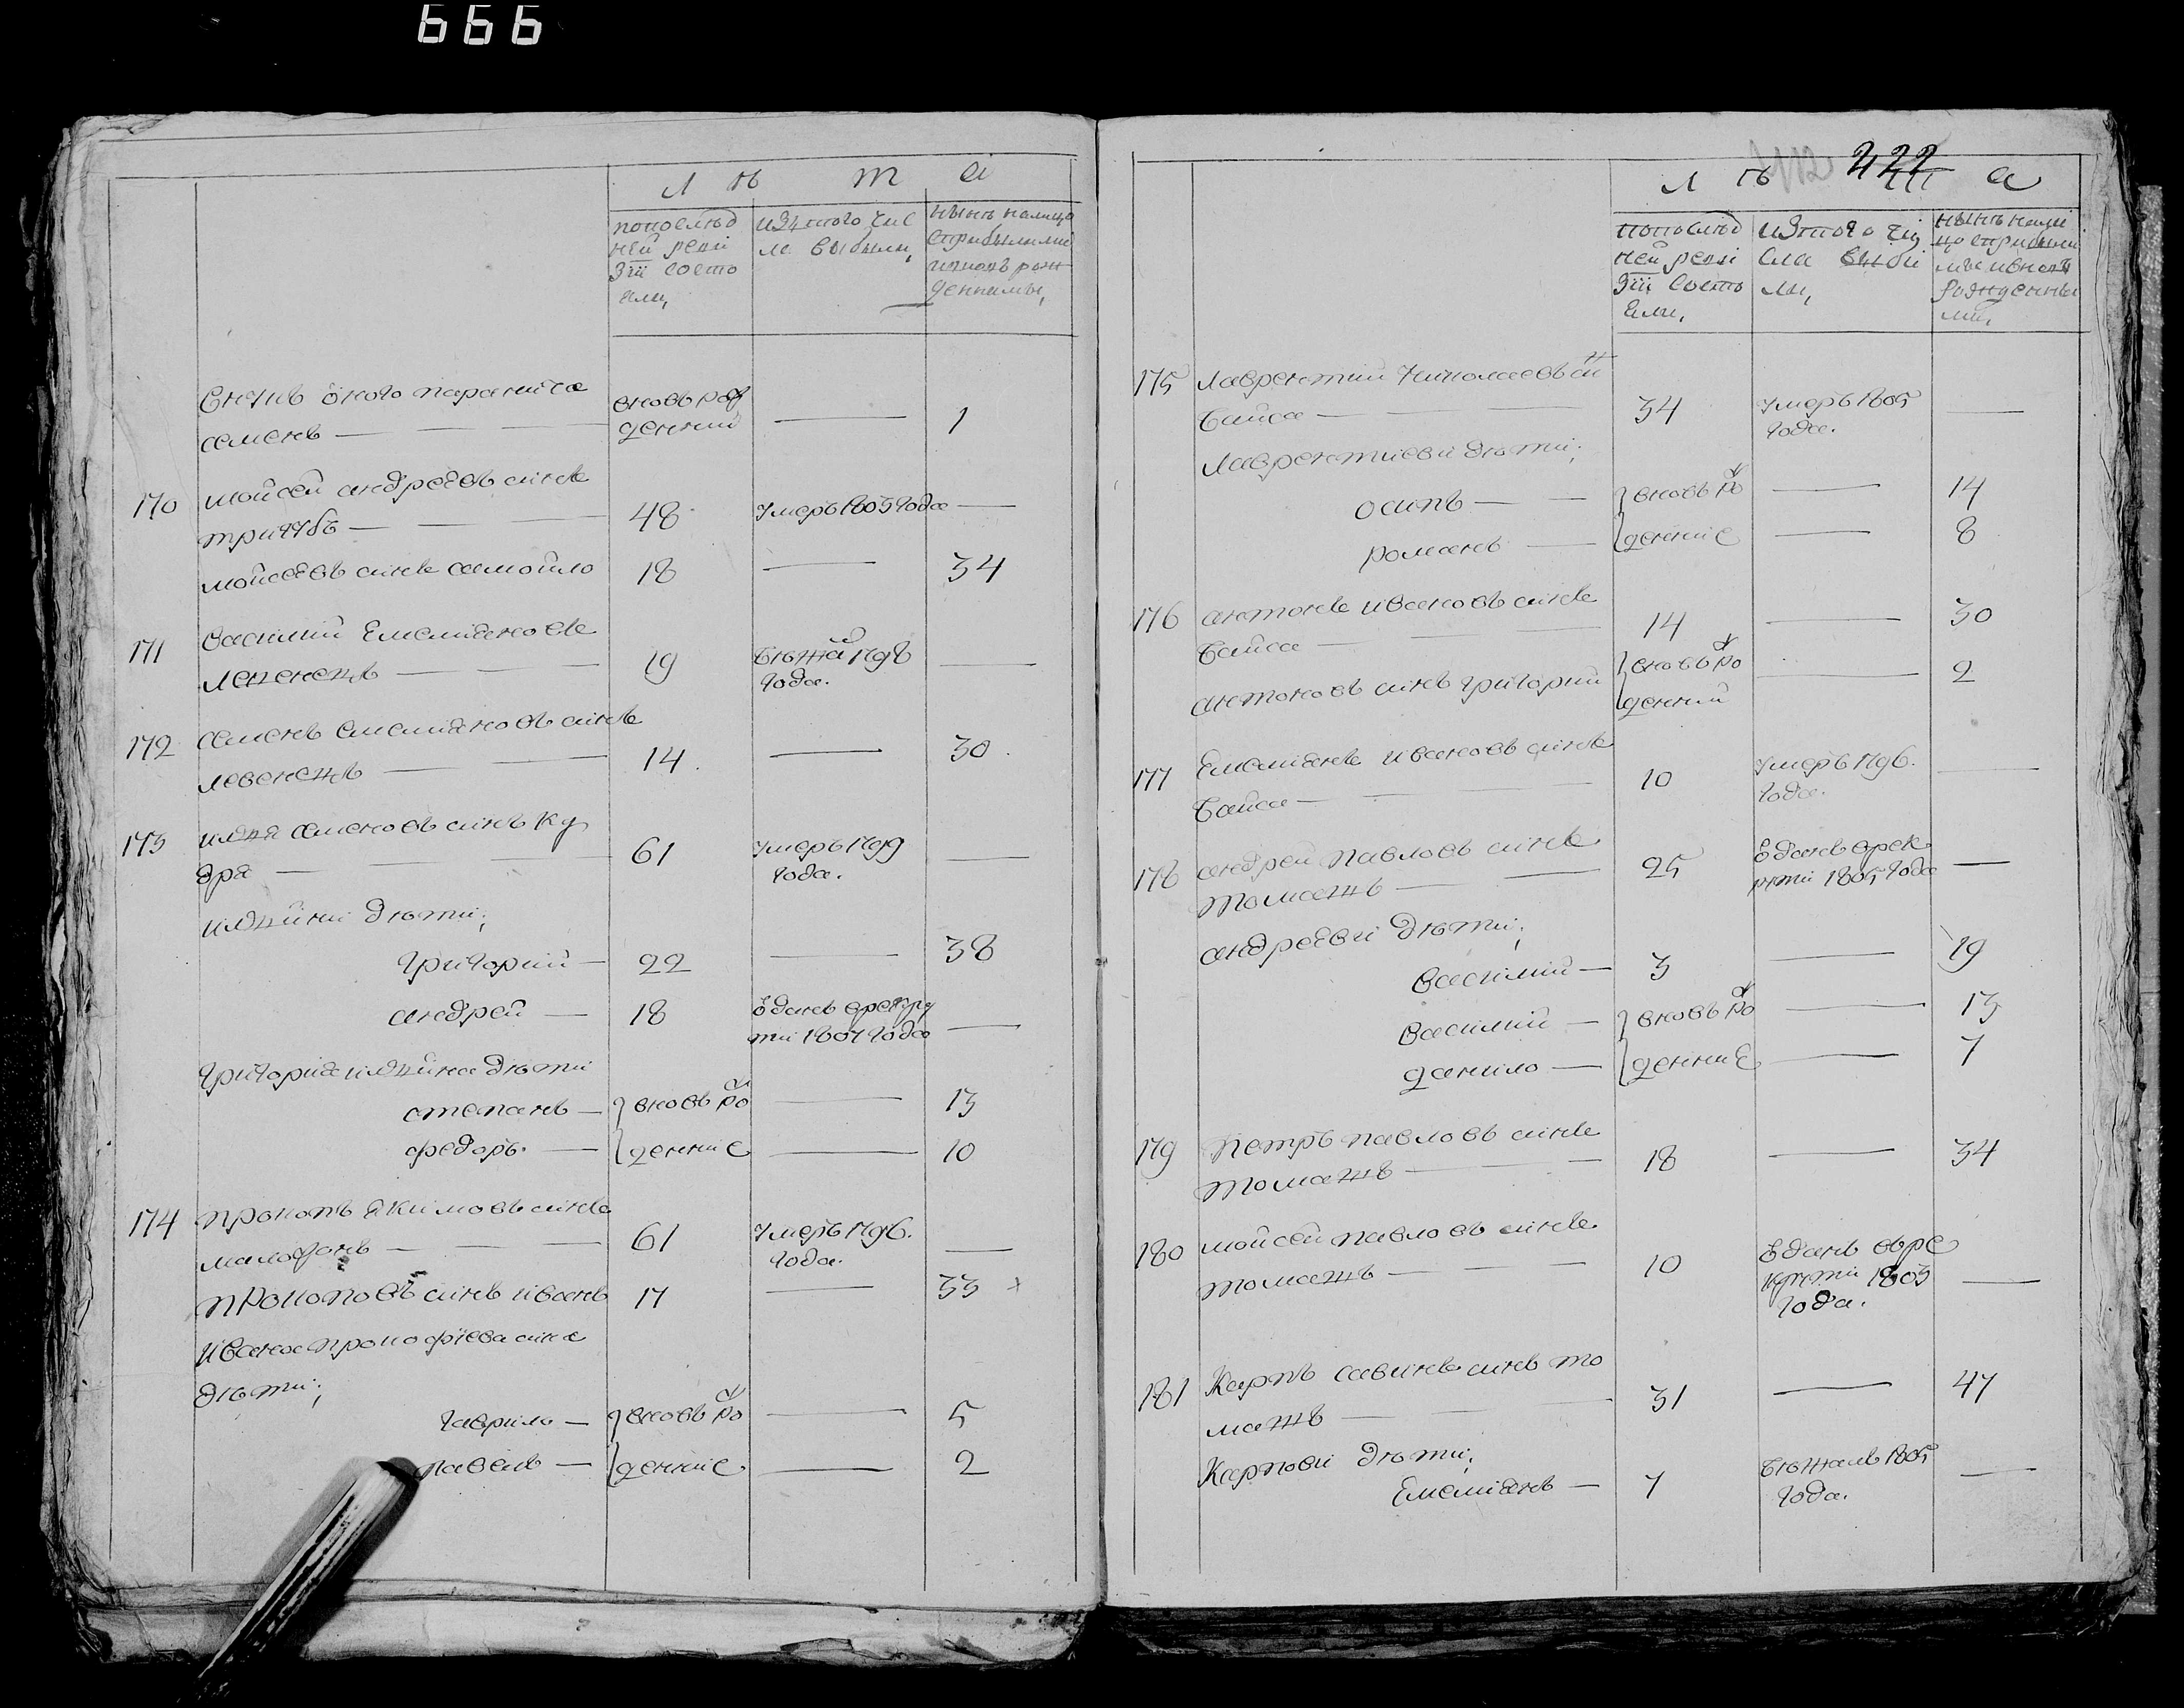 666
Л ѣ т а
попослѣд
ней реви
зіи состо
яли,
изтого чис
ла выбыли,
нынѣ налицо
сприбылими
иновь рож
денними,
вновь рож
семенъ — 
денний — 1
170 мойсей андрѣевъ синъ
48 умеръ 1805 года —
мойсѣевъ синъ самойло 18 — 34
171 василий Емелияновъ
19 бѣжалъ 1798
года. —
172 семенъ емелияновъ синъ
левенецъ — 14. — 30.
173 илья семеновъ синъ ку
дря — 61 умеръ 1799
года. —
ильини дѣти;
григорий — 22 — 38
андрей — 18 ѿданъ врекру
ти 1807 года —
григория ильина дѣти
степанъ — вновь рож — 13
федоръ. — денние — 10
174 прокопъ якимовъ синъ
61 умеръ 1796.
года. —
прокоповъ синъ иванъ 17 — 33
ивана прокофиева сина
дѣти;
гаврило — вновь рож — 5
павелъ — денние — 2
422
Л ѣ т а
попослѣд
ней реви
зіи состо
яли,
изтого чи
сла выби
ли,
нынѣ нали
цо сприбыли
ми ивновь
рожденны
ми,
175 лаврентий николаевъ синъ
байса — 34 умеръ 1805
года. —
лаврентиеви дѣти;
осипъ — вновь рож — 14
романъ — денние — 8
176 антонъ ивановъ синъ
байса — 14 — 30
антоновъ синъ григорий вновь рож — 2
денний
177 Емелиянъ ивановъ синъ
байса — 10 умеръ 1796.
года. —
178 андрей павловъ синъ
томашъ — 25 ѿданъ врек
рути 1805 года —
андрѣеви дѣти;
василий — 3 — 19
василий — вновь рож — 13
данило — денние — 7
179 Петръ павловъ синъ
томашъ — 18 — 34
180 мойсей павловъ синъ
томашъ — 10 ѿданъ вре
крути 1803
года. —
181 Карпъ савинъ синъ то
машъ — 31 — 47
Карпови дѣти;
Емелиянъ — 7 бѣжалъ 1805
года. —